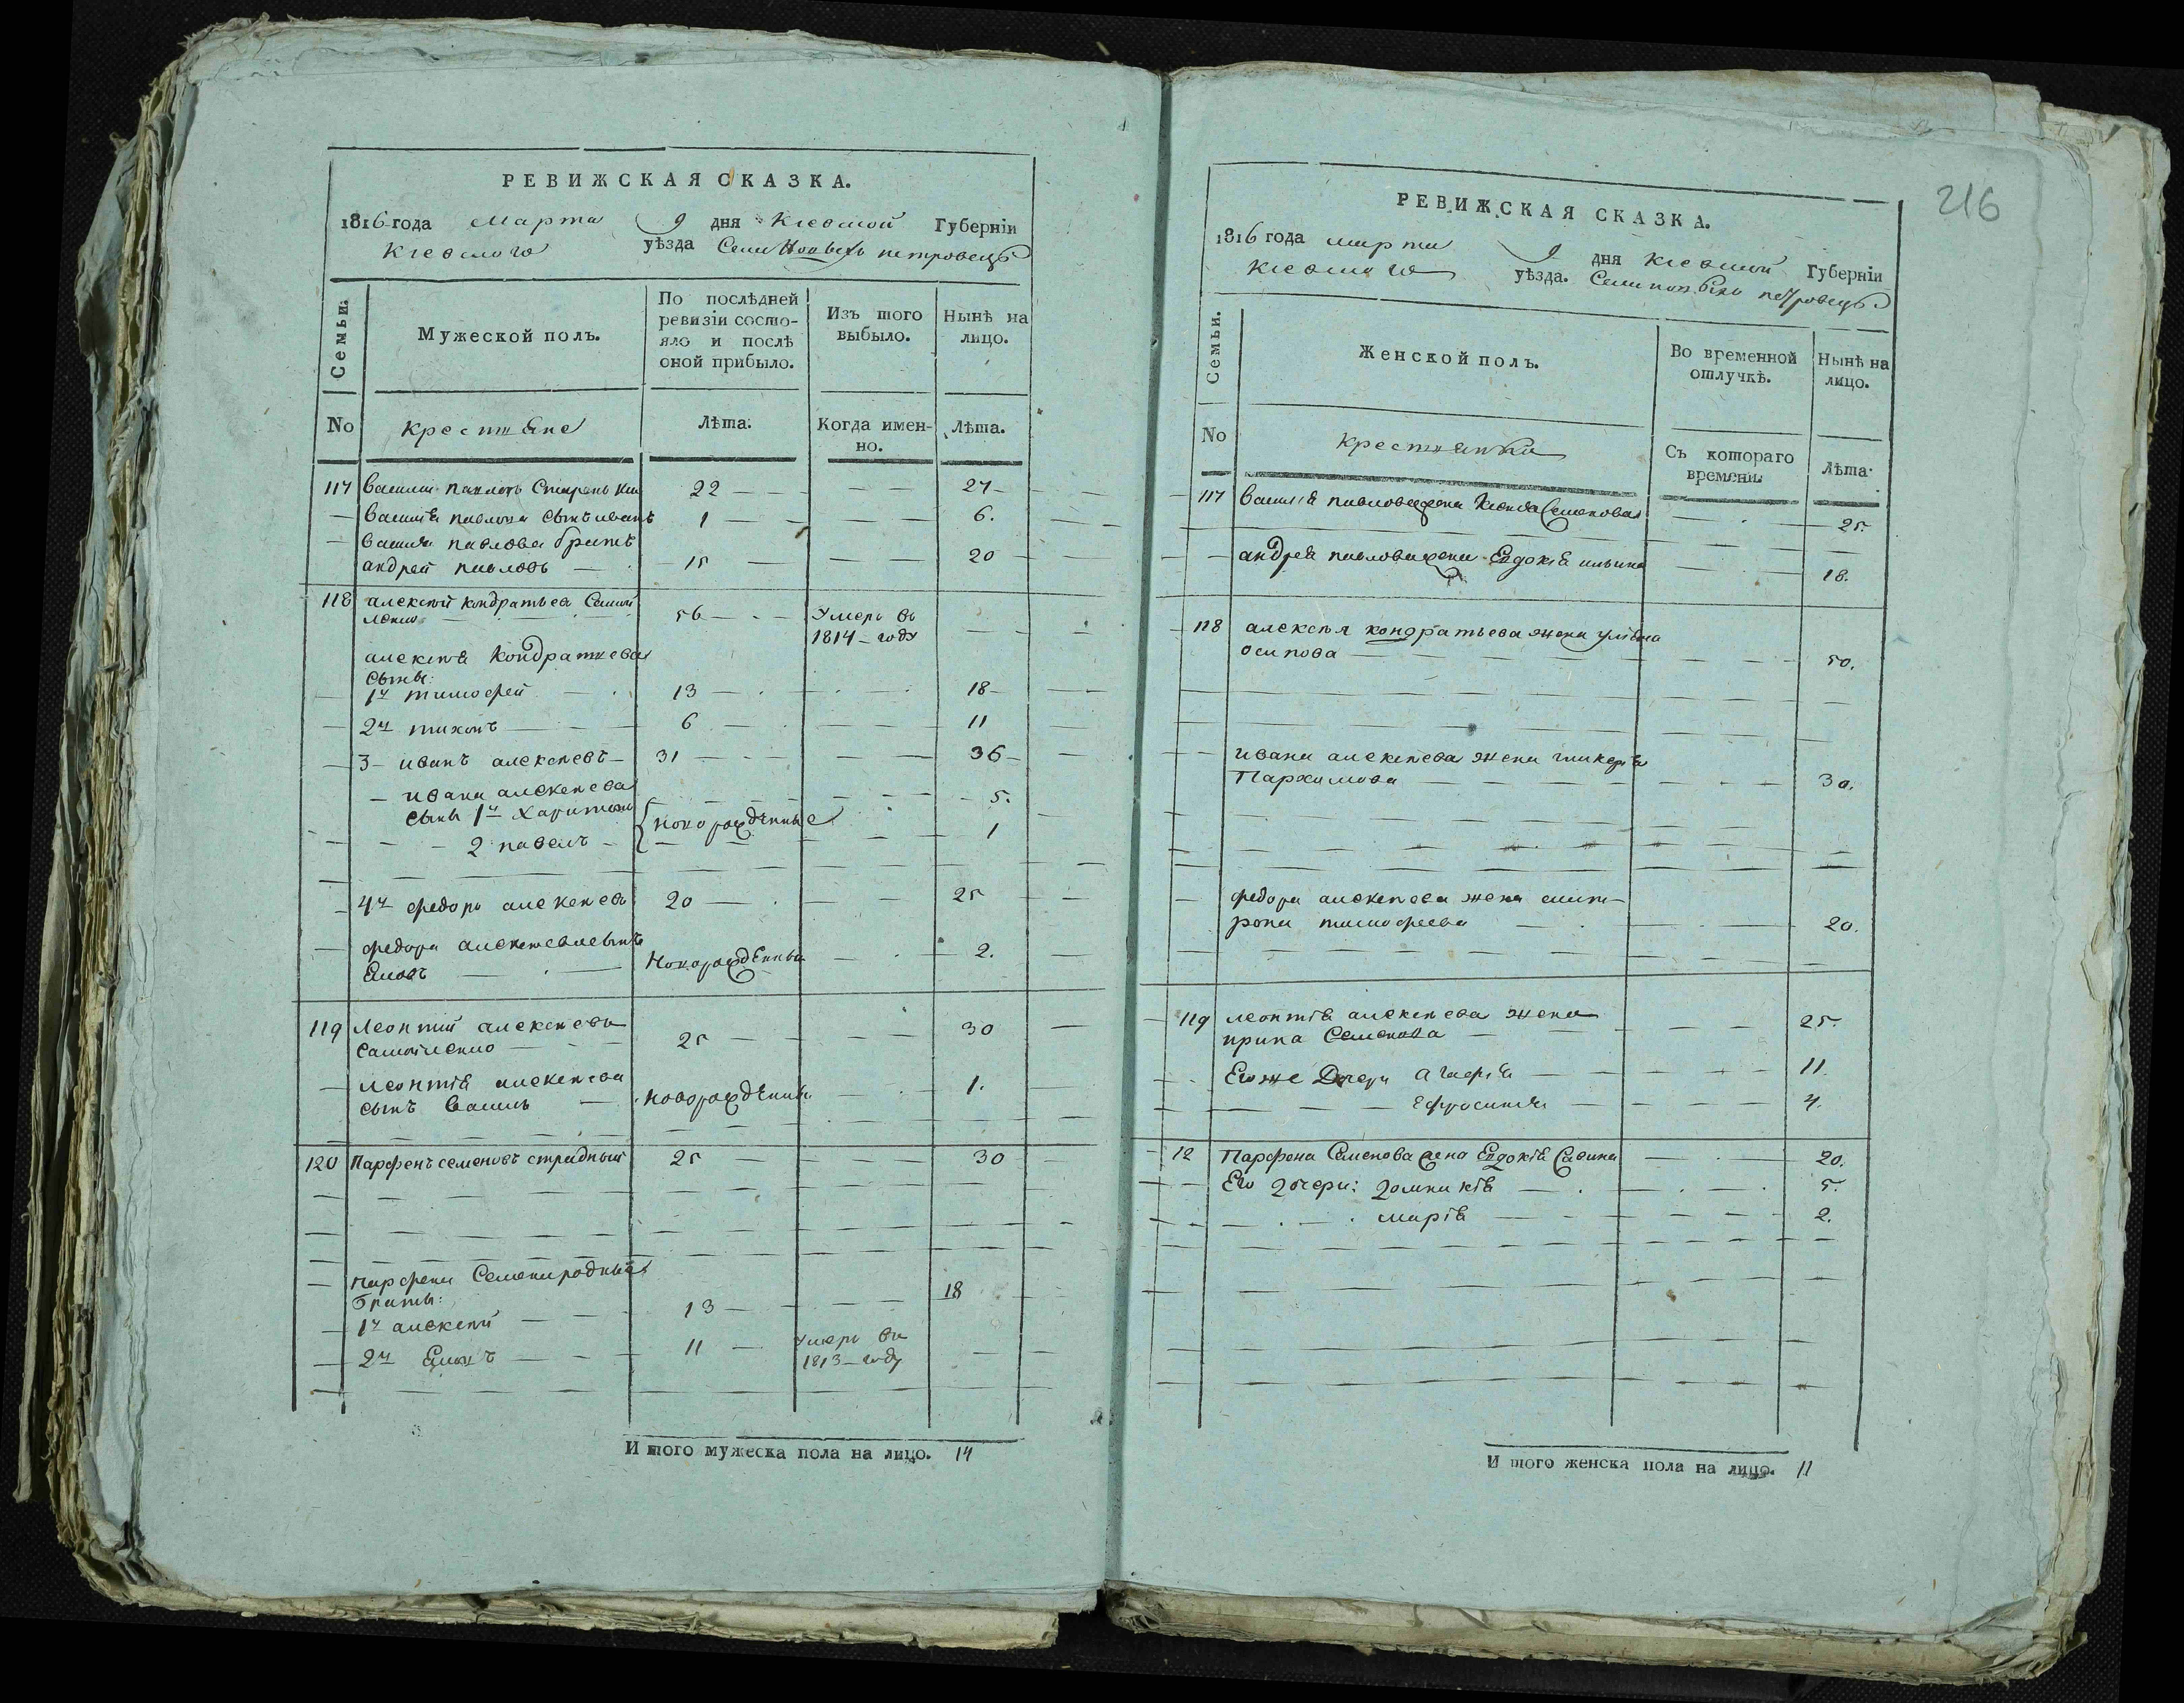 РЕВИЖСКАЯ СКАЗКА.
1816 года Марта 9 дня Киевской Губерніи
Киевского уѣзда Сели Новыхъ петровецъ
Семьи.
Мужеской полъ.
По послѣдней ревизіи состо-
яло и послѣ
оной прибыло.
Изъ того
выбыло.
Нынѣ на
лицо.
No
крестьяне
Лѣта.
Когда имен-
но.
Лѣта.
117 Василий павловъ 22 27
Василия павлова сынъ иванъ 1 6.
Василия павлова братъ
андрей павловъ 15 20
118 алексѣй кондратьевъ Самой
ленко 56 Умеръ въ
1814 году
алексѣя Кондратьева
сыны:
1й тимофей 13 18
2й тихонъ 6 11
3 иванъ алексѣевъ 31 36
ивана алексѣева
сыны 1й Харитонъ 5.
2 павелъ новорожденные 1
4й федоръ алексѣевъ 20 25
федора алексѣева сынъ
новорожденный 2.
119 Леонтий алексѣевъ
Самойленко 25 30
Леонтия алексѣева
сынъ Василь новорожденный 1.
120 Парфенъ семеновъ 25 30
Парфена Семена родные
браты:
1й алексѣй 13 18
2й 11 Умеръ въ
1813 году
И того мужеска пола на лицо. 14
216
РЕВИЖСКАЯ СКАЗКА.
1816 года марта 9 дня Киевской Губерніи
Киевского уѣзда. Сели новыхъ петровецъ
Семьи.
Женской полъ.
Во временной
отлучкѣ.
Нынѣ на
лицо.
No
Крестьянки
Съ котораго
времени.
Лѣта.
117 Василия павлова жена Семенова 25.
андрея павлова жена Евдокія ильина 18.
118 алексѣя кондратьева жена улияна
осипова 50.
ивана алексѣева жена гликерія
Пархомова 30.
федора алексѣева жена
тимофеева 20.
119 леонтія алексѣева жена
ирина Семенова 25.
Его же Дочери агафія 11.
Ефросинія 4.
12 Парфена Семенова жена Евдокія Савина 20.
Его дочери: домникія 5.
марія 2.
И того женска пола на лицо. 11